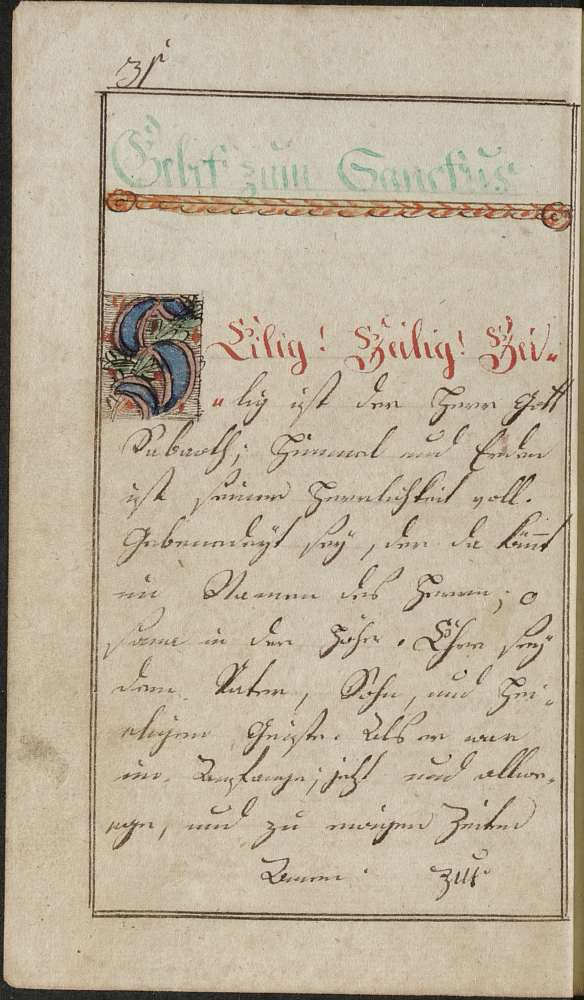 31
Gebet zum Sanctus
Heilig! Heilig! Hei=
=lig ist der Herr Gott
Sabaoth; Himmel und Erden
ist seiner Herrlichkeit voll.
Gebenedeyt sey, der da kömt
im Namen des Herrn; o
sana in der Höhe. Ehre sey
dem Vater, Sohn, und Hei=
eligen Geiste. Als er war
im Anfange; jetzt und allwe=
ege, und zu ewigen Zeiten
Amen. zur